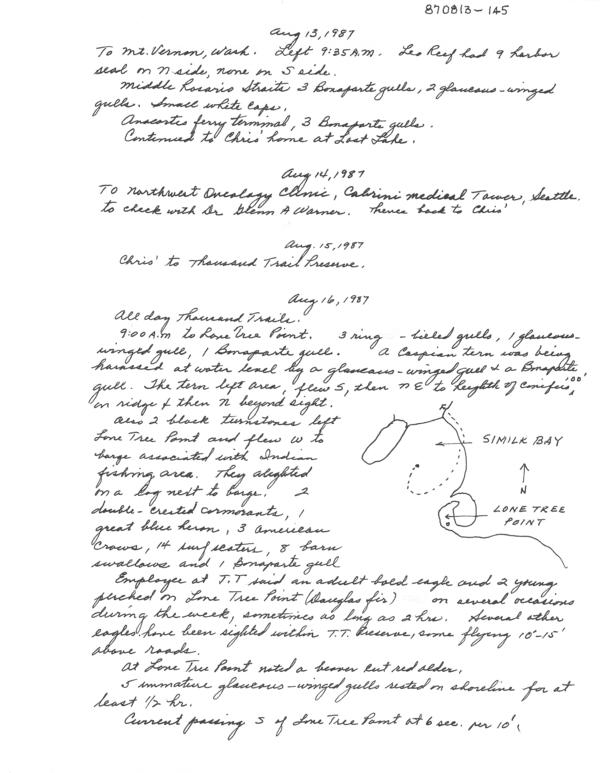 870813-145
Aug 13, 1987
To Mt. Vernon, Wash. Left 9:35 A.M. Leo Reef had 9 harbor
seal on N side, none on S side.
Middle Rosario Straits 3 Bonaparte gulls, 2 glaucous-winged
gulls. Small white caps.
Anacortes ferry terminal, 3 Bonaparte gulls.
Continued to Chris' home at Lost Lake.
Aug 14, 1987
To Northwest Oncology Clinic, Cabrini Medical Tower, Seattle.
to check with Dr Glenn A Warner. Thence back to Chris'
Aug. 15, 1987
Chris' to Thousand Trail Preserve.
Aug 16, 1987
All day Thousand Trails.
9:00 A.M to Lone Tree Point. 3 ring-billed gulls, 1 glaucous-
winged gull, 1 Bonaparte gull. A Caspian tern was being
harassed at water level by a glaucous-winged gull & a Bonaparte
gull. The tern left area, flew S, then NE to heighth of conifers,
on ridge & then N beyond sight.
Also 2 black turnstones left
Lone Tree Point and flew W to
barge associated with Indian
fishing area. They alighted
on a log next to barge. 2
double-crested cormorants, 1
great blue heron, 3 American
crows, 14 surf scoters, 8 barn
swallows and 1 Bonaparte gull
SIMILK BAY
N
LONE TREE
POINT
Employee at T.T said an adult bald eagle and 2 young
perched on Lone Tree Point (Douglas fir) on several occasions
during the week, sometimes as long as 2 hrs. Several other
eagles have been sighted within T.T. Preserve, some flying 10'-15'
above roads.
At Lone Tree Point noted a beaver cut red alder.
5 immature glaucous-winged gulls rested on shoreline for at
least 1/2 hr.
Current passing S of Lone Tree Point at 6 sec. per 10'.